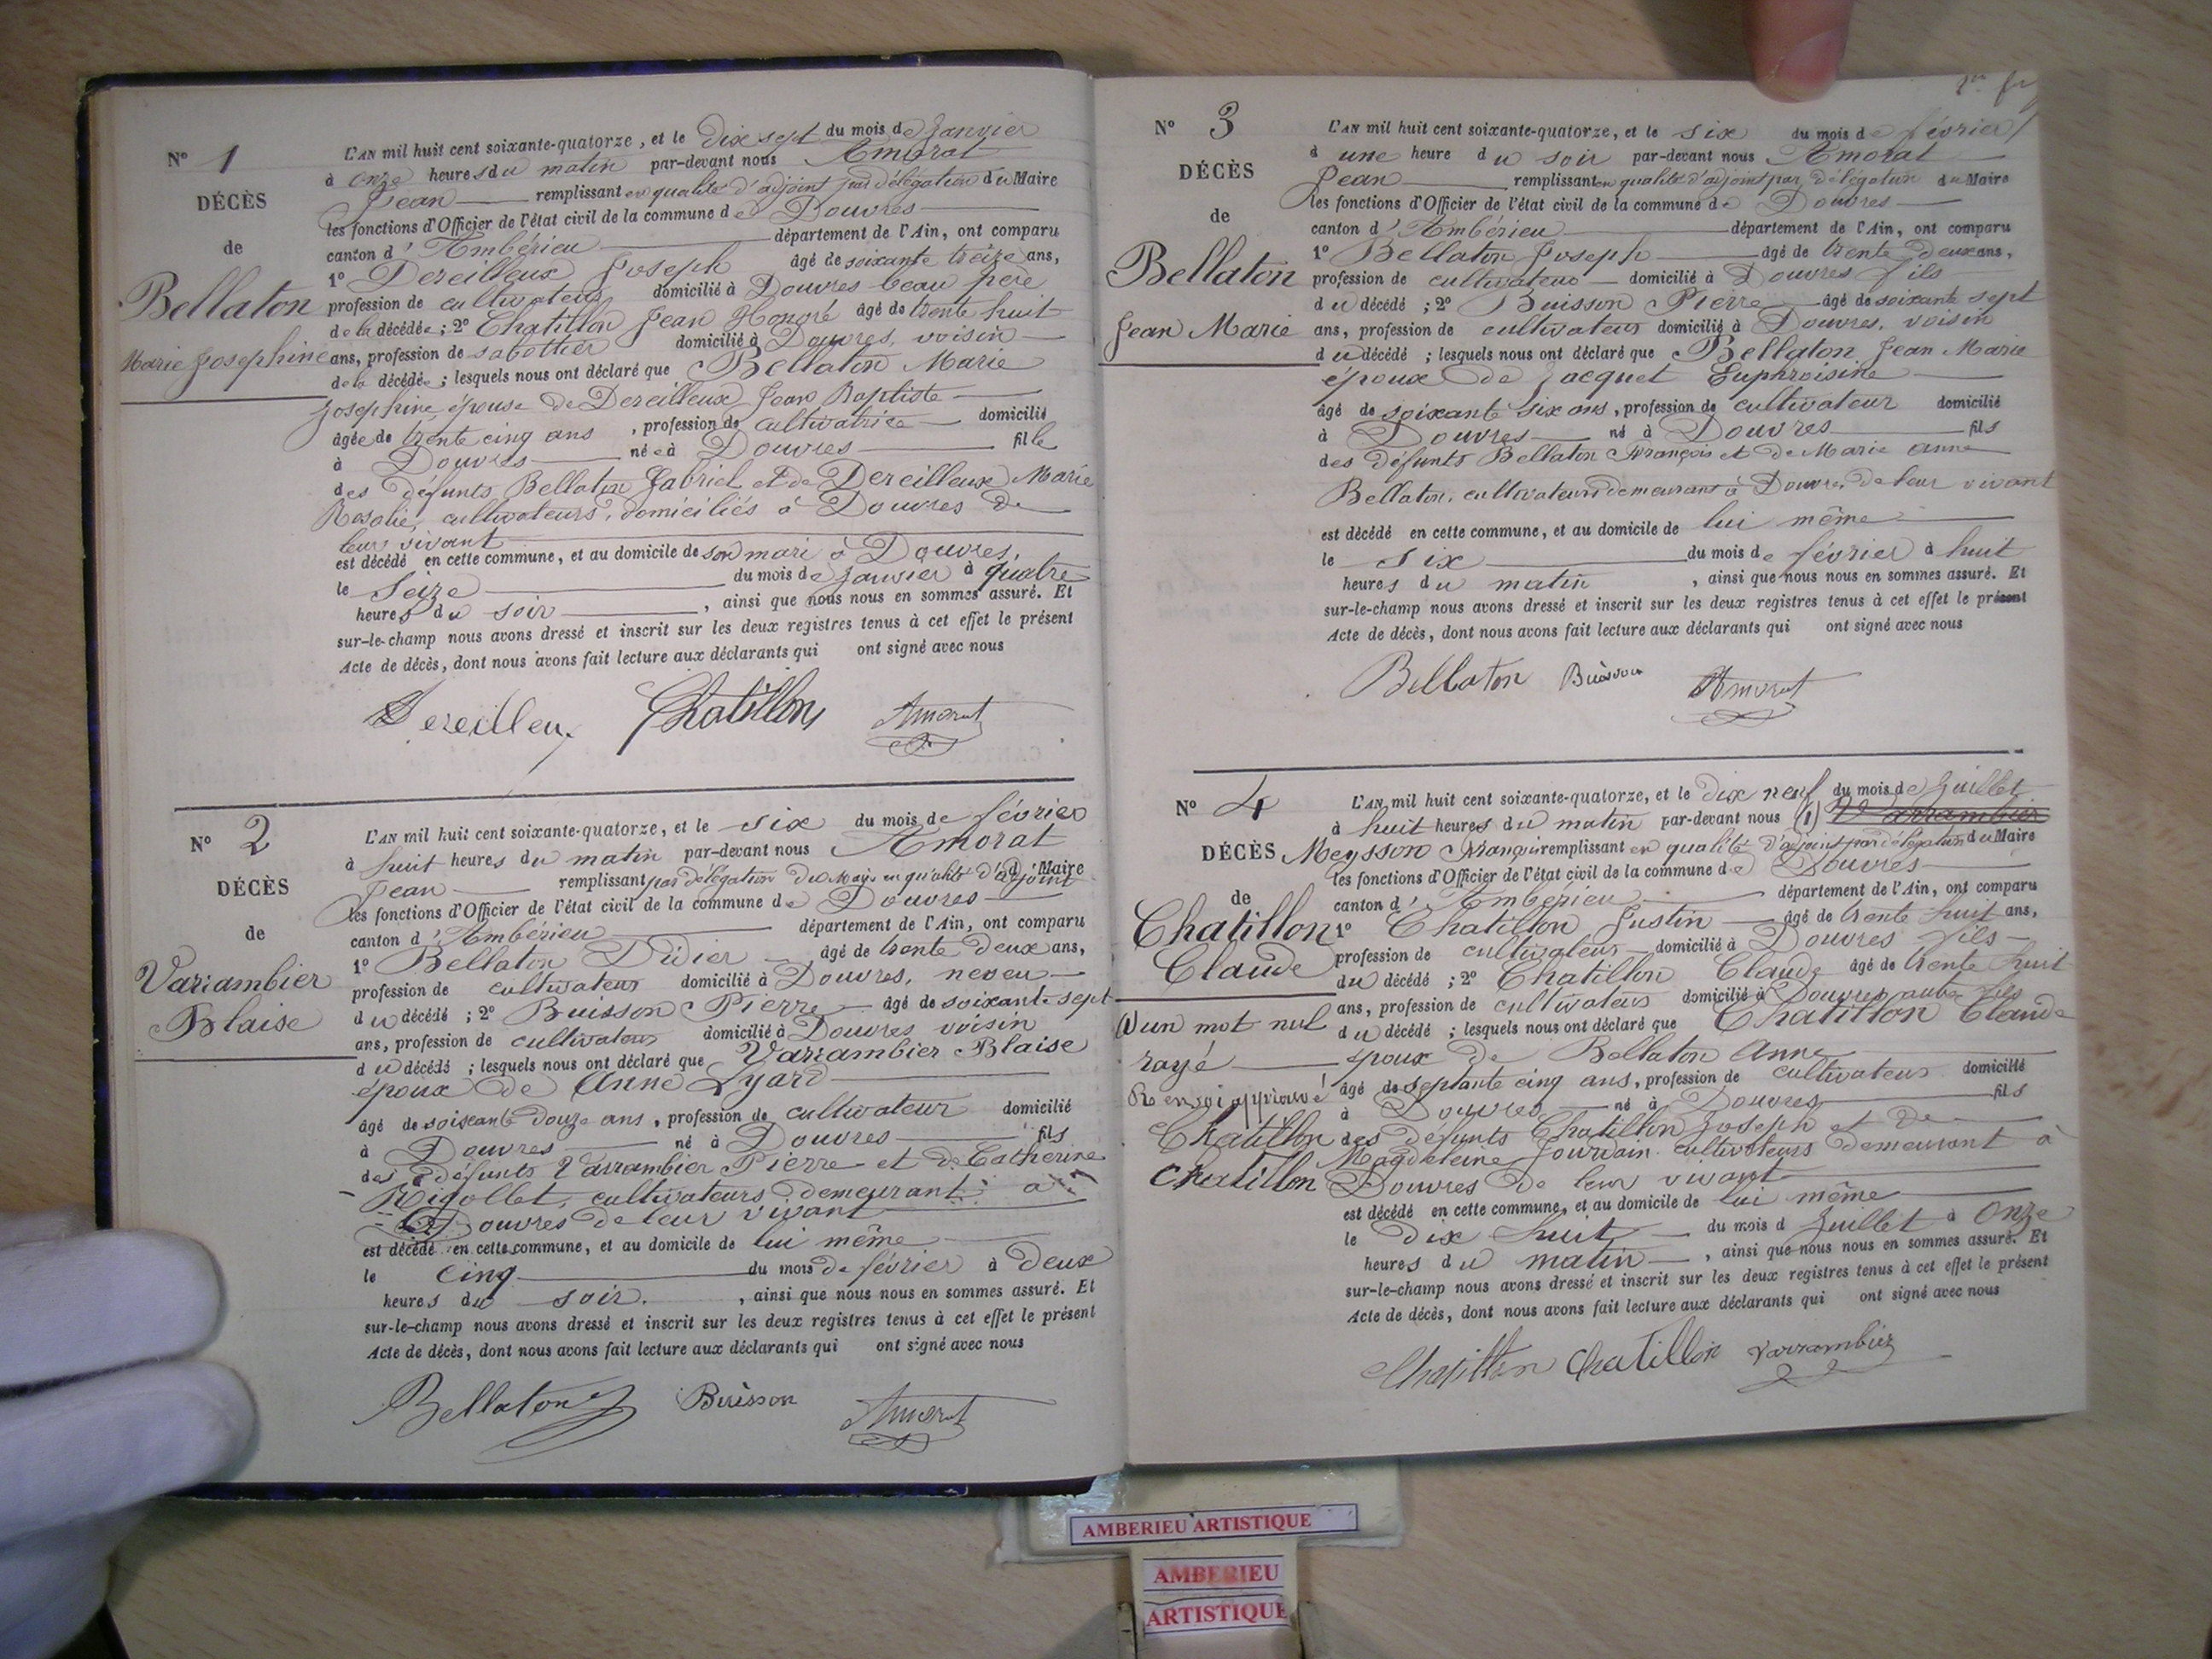 N° 1
DÉCÈS
de
Bellaton
Marie Josephine
L'AN mil huit cent soixante-quatorze, et le dix sept du mois de Janvier
à onze heures du matin par-devant nous Amorat
Jean remplissant en qualité d'adjoint par délégation du Maire
les fonctions d'Officier de l'état civil de la commune de Douvres
canton d'Ambérieu département de l'Ain, ont comparu
1° Dereilleux Joseph âgé de soixante treize ans,
profession de cultivateur domicilié à Douvres beau père
de la décédée ; 2° Chatillon Jean Honoré âgé de trente huit
ans, profession de sabottier domicilié à Douvres, voisin
de la décédée ; lesquels nous ont déclaré que Bellaton Marie
Josephine, épouse de Dereilleux Jean Baptiste
âgée de trente cinq ans, profession de cultivatrice domicilié
à Douvres née à Douvres fille
des défunts Bellaton Gabriel et de Dereilleux Marie
Rosalie, cultivateurs, domiciliés à Douvres de
leur vivant
est décédé en cette commune, et au domicile de son mari à Douvres,
le Seize du mois de Janvier à quatre
heures du soir, ainsi que nous nous en sommes assuré. Et
sur-le-champ nous avons dressé et inscrit sur les deux registres tenus à cet effet le présent
Acte de décès, dont nous avons fait lecture aux déclarants qui ont signé avec nous
Dereilleux Chatillon Amorat
N° 2
DÉCÈS
de
Varrambier
Blaise
L'AN mil huit cent soixante-quatorze, et le six du mois de février
à huit heures du matin par-devant nous Amorat
Jean remplissant par délégation du Maire en qualité d'adjoint d Maire
les fonctions d'Officier de l'état civil de la commune de Douvres
canton d'Ambérieu département de l'Ain, ont comparu
1° Bellaton Didier âgé de trente deux ans,
profession de cultivateur domicilié à Douvres, neveu
du décédé ; 2° Buisson Pierre âgé de soixante sept
ans, profession de cultivateur domicilié à Douvres voisin
du décédé ; lesquels nous ont déclaré que Varrambier Blaise
époux de Anne Lyard
âgé de soixante douze ans, profession de cultivateur domicilié
à Douvres né à Douvres fils
des défunts Varrambier Pierre et de Catherine
Rigollet, cultivateurs demeurant à
Douvres de leur vivant
est décédé en cette commune, et au domicile de lui même
le cinq du mois de février à deux
heures du soir, ainsi que nous nous en sommes assuré. Et
sur-le-champ nous avons dressé et inscrit sur les deux registres tenus à cet effet le présent
Acte de décès, dont nous avons fait lecture aux déclarants qui ont signé avec nous
Bellaton Buisson Amorat
N° 3
DÉCÈS
de
Bellaton
Jean Marie
L'AN mil huit cent soixante-quatorze, et le six du mois de février
à une heure du soir par-devant nous Amorat
Jean remplissant en qualité d'adjoint par délégation du Maire
les fonctions d'Officier de l'état civil de la commune de Douvres
canton d'Ambérieu département de l'Ain, ont comparu
1° Bellaton Joseph âgé de trente deux ans,
profession de cultivateur domicilié à Douvres fils
du décédé ; 2° Buisson Pierre âgé de soixante sept
ans, profession de cultivateur domicilié à Douvres, voisin
du décédé ; lesquels nous ont déclaré que Bellaton Jean Marie
époux de Jacquet Euphroisine
âgé de soixante six ans, profession de cultivateur domicilié
à Douvres né à Douvres fils
des défunts Bellaton François et de Marie Anne
Bellaton, cultivateurs demeurans à Douvres de leur vivant
est décédé en cette commune, et au domicile de lui même
le six du mois de février à huit
heures du matin, ainsi que nous nous en sommes assuré. Et
sur-le-champ nous avons dressé et inscrit sur les deux registres tenus à cet effet le présent
Acte de décès, dont nous avons fait lecture aux déclarants qui ont signé avec nous
Bellaton Buisson Amorat
N° 4
DÉCÈS
de
Chatillon
Claude
(1) un mot nul
rayé
Renvoi approuvé
Chatillon
Chatillon
L'AN mil huit cent soixante-quatorze, et le dix neuf du mois de Juillet
à huit heures du matin par-devant nous (1) Varrambier
Meysson François remplissant en qualité d'adjoint par délégation du Maire
les fonctions d'Officier de l'état civil de la commune de Douvres
canton d'Ambérieu département de l'Ain, ont comparu
1° Chatillon Justin âgé de trente huit ans,
profession de cultivateur domicilié à Douvres fils
du décédé ; 2° Chatillon Claude âgé de trente huit
ans, profession de cultivateur domicilié à Douvres autre fils
du décédé ; lesquels nous ont déclaré que Chatillon Claude
époux de Bellaton Anne
âgé de septante cinq ans, profession de cultivateur domicilié
à Douvres né à Douvres fils
des défunts Chatillon Joseph et de
Magdeleine Jourdain cultivateurs demeurant à
Douvres de leur vivant
est décédé en cette commune, et au domicile de lui même
le dix huit du mois d Juillet à onze
heures du matin, ainsi que nous nous en sommes assuré. Et
sur-le-champ nous avons dressé et inscrit sur les deux registres tenus à cet effet le présent
Acte de décès, dont nous avons fait lecture aux déclarants qui ont signé avec nous
Chatillon Chatillon Varrambier
AMBERIEU ARTISTIQUE
AMBERIEU
ARTISTIQUE